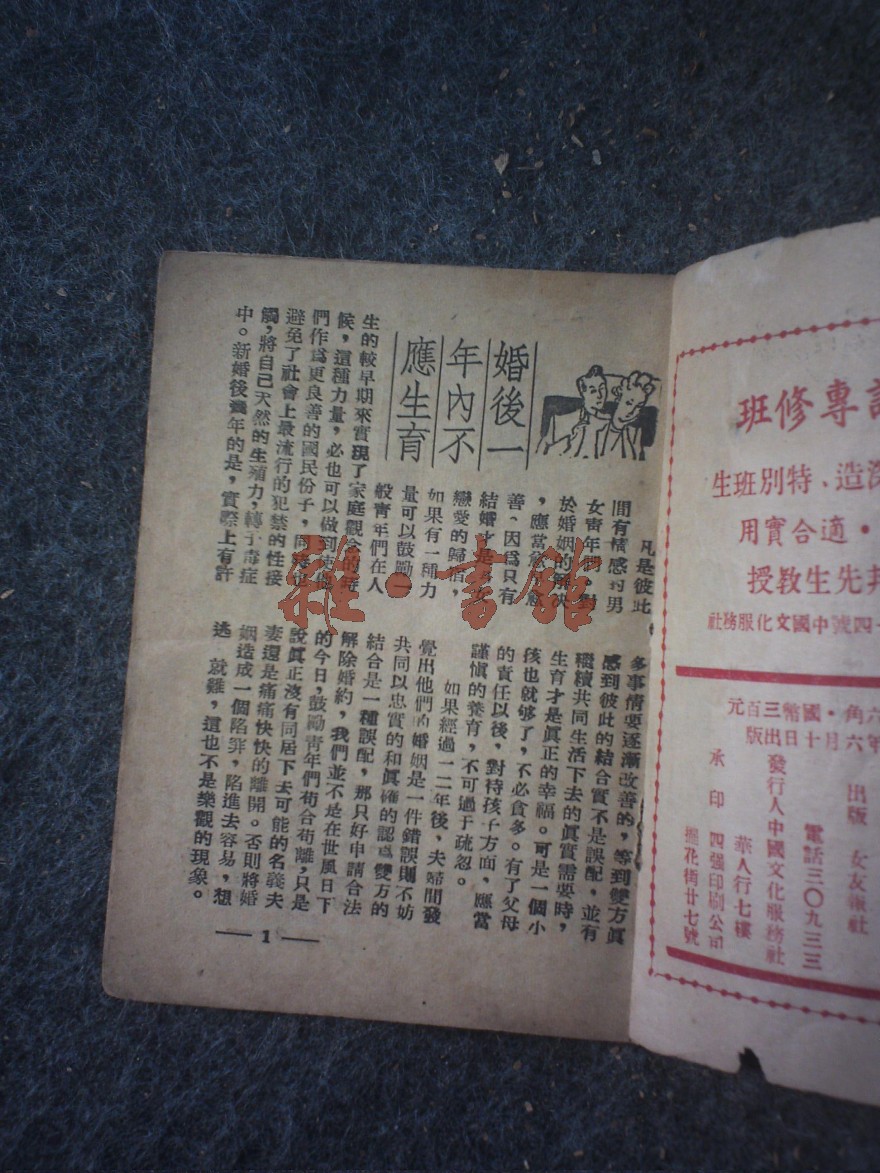 婚後一
年內不
應生育
凡是彼此
間有情感的男
女青年們。對
於婚姻的解決
，應當愈早愈
善、因爲只有
結婚才是男女
戀愛的歸宿，
如果有一種力
量可以鼓勵一
般青年們在人
生的較早期來實現了家庭觀念的時
候，這種力量，必也可以做到使他
們作爲更良善的國民份子，同時也
避免了社會上最流行的犯禁的性接
觸，將自己天然的生殖力，轉于毒症
中。新婚後養年的是，實際上有許
多事情要逐漸改善的，等到雙方眞
感到彼此的結合實不是誤配，並有
繼續共同生活下去的眞實需要時，
生育才是眞正的幸福。可是一個小
孩也就够了，不必貪多。有了父母
的責任以後，對待孩子方面，應當
謹愼的養育，不可過于疏忽。
如果經過一二年後，夫婦間發
覺出他們的婚姻是一件錯誤則不妨
共同以忠實的和眞確的認爲雙方的
結合是一種誤配，那只好申請合法
解除婚約，我們並不是在世風日下
的今日，鼓勵青年們苟合苟離，只是
說眞正沒有同居下去可能的名義夫
妻還是痛痛快快的離開。否則將婚
姻造成一個陷穽，陷進去容易，想
逃 就難，這也不是樂觀的現象。
— 1 —
雜·書館
專修班
深造、特別班生
·適合實用
先生教授
四號中國文化服務社
六角·國幣三百元
年六月十日出版
出版 女友報社
電話三〇九三三
發行人中國文化服務社
華人行七樓
承印 四强印刷公司
擺花街廿七號